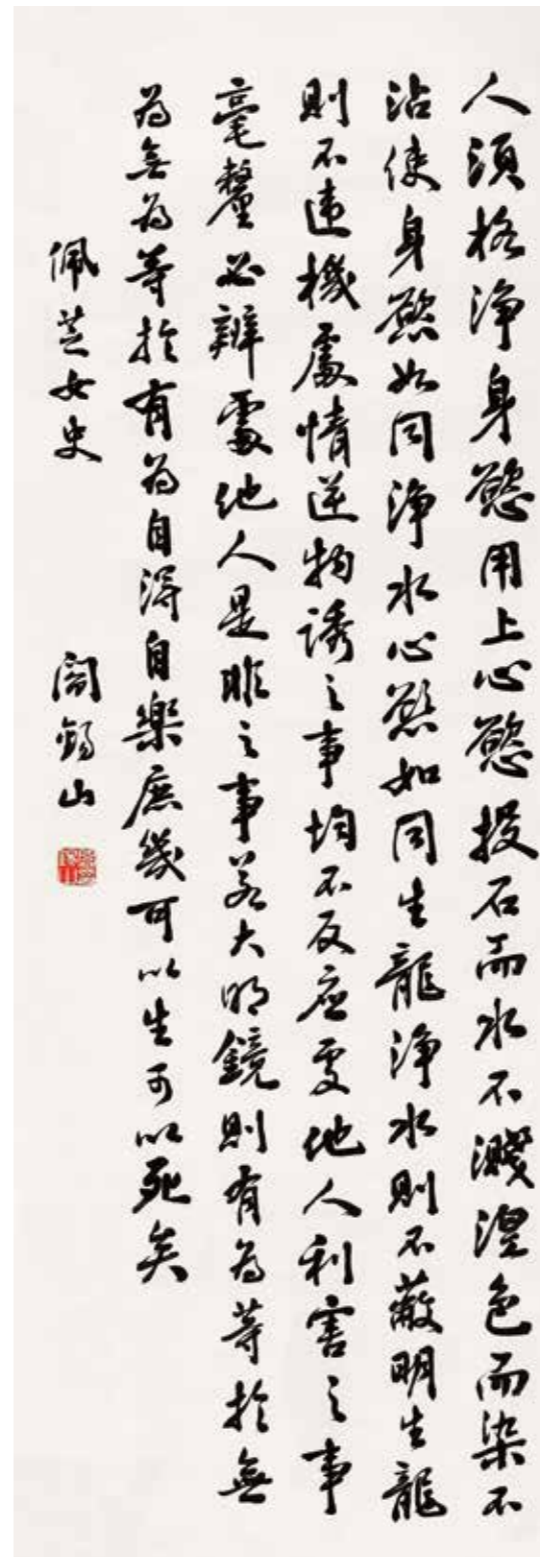 人須格淨身慾用上心慾投石而水不濺涅色而染不
沾使身慾如同淨水心慾如同生龍淨水則不蔽明生龍
則不違機處情逆物誘之事均不反應處他人利害之事
毫釐必辨處他人是非之事若大明鏡則有為等於無
為無為等於有為自得自樂庶幾可以生可以死矣
佩芝女史 閻錫山